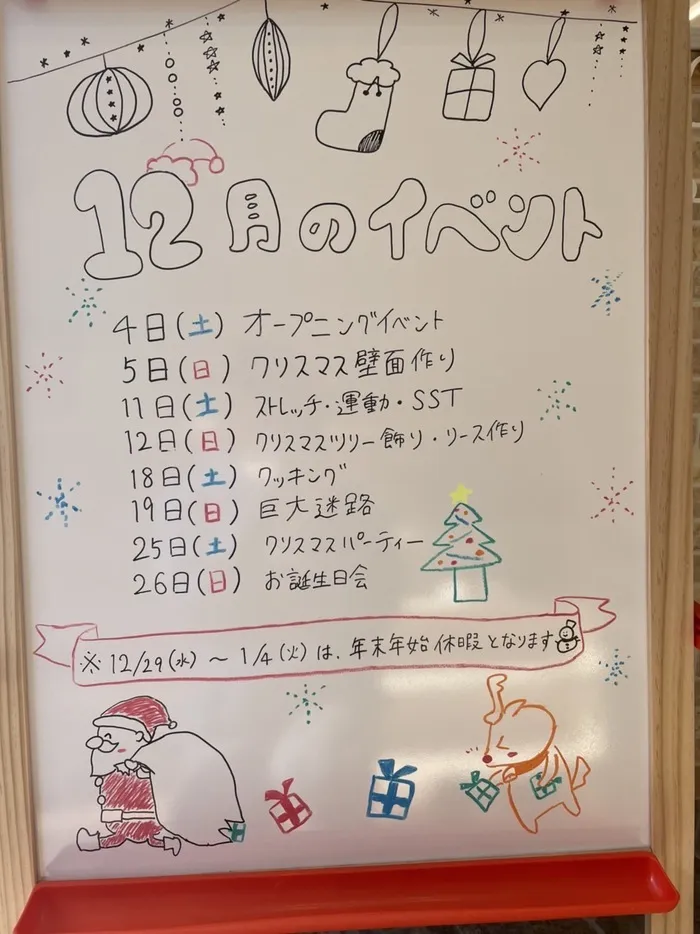 12月のイベント
4日(土) オープニングイベント
5日(日) クリスマス壁面作り
11日(土) ストレッチ・運動・SST
12日(日) クリスマスツリー飾り・リース作り
18日(土) クッキング
19日(日) 巨大迷路
25日(土) クリスマスパーティー
26日(日) お誕生日会
※12/29(水)〜1/4(火)は、年末年始休暇となります